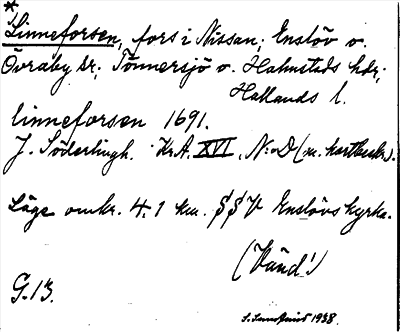 *
Linneforsen, fors i Nissan; Enslöv o.
Övraby sr; Tönnersjö o. Halmstads hdr;
Hallands l.
linneforsen 1691.
J. Söderlingh. Kr.A. XVI, N:o D (m. kartbeskr.).
Läge omkr. 4.1 km. §§V Enslövs kyrka.
(Vänd!)
G.13.
1938.